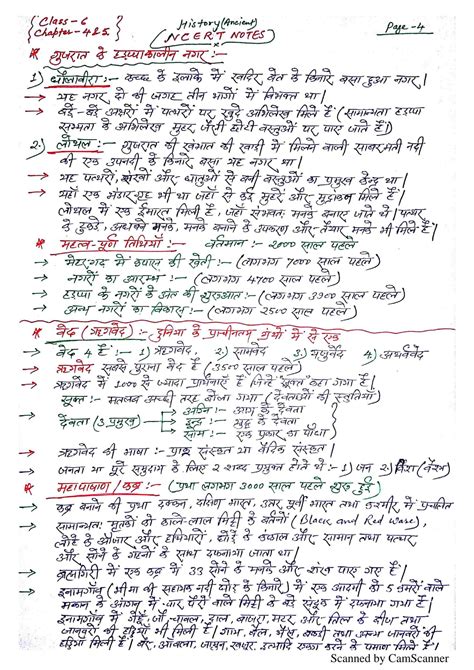 Class-6
Chapter-4&5
History (Ancient)
NCERT NOTES
Page-4
* गुजरात के हड़प्पाकालीन नगर :-
1) धौलावीरा :- कच्छ के इलाके में खदिर बेत के किनारे बसा हुआ नगर।
→ यह नगर दो की जगह तीन भागों में विभक्त था।
→ बड़े-बड़े अक्षरों में पत्थरों पर खुदे अभिलेख मिले हैं (सामान्यतः हड़प्पा
सभ्यता के अभिलेख मुहर जैसी छोटी वस्तुओं पर पाए जाते हैं)
2) लोथल :- गुजरात की खंभात की खाड़ी में मिलने वाली साबरमती नदी
की एक उपनदी के किनारे बसा यह नगर था।
→ यह पत्थरों, शंखों और धातुओं से बनी वस्तुओं का प्रमुख केन्द्र था।
→ यहाँ एक भंडार गृह भी था जहाँ से कई मुहरें और मुद्रांकन मिले हैं।
→ लोथल में एक इमारत मिली है, जहाँ संभवतः मनके बनाए जाते थे। पत्थर
के टुकड़े, अधबने मनके, मनके बनाने के उपकरण और तैयार मनके भी मिले हैं।
* महत्व-पूर्ण तिथियाँ :- वर्तमान :- 2000 साल पहले
→ मेहरगढ़ में कपास की खेती :- (लगभग 7000 साल पहले)
→ नगरों का आरम्भ :- (लगभग 4700 साल पहले)
→ हड़प्पा के नगरों के अंत की शुरुआत :- (लगभग 3900 साल पहले)
→ अन्य नगरों का विकास :- (लगभग 2500 साल पहले)
* वेद (ऋग्वेद) :- दुनिया के प्राचीनतम ग्रंथों में से एक
→ वेद 4 हैं :- 1) ऋग्वेद 2) सामवेद 3) यजुर्वेद 4) अथर्ववेद
→ ऋग्वेद सबसे पुराना वेद है (3500 साल पहले)
→ ऋग्वेद में 1000 से ज्यादा प्रार्थनाएँ हैं जिन्हें सूक्त कहा गया है।
सूक्त :- मतलब अच्छी तरह बोला गया (देवताओं की स्तुतियाँ)
→ देवता (3 प्रमुख) → अग्नि :- आग के देवता
→ इन्द्र :- युद्ध के देवता
→ सोम :- एक प्रकार का पौधा
→ ऋग्वेद की भाषा :- प्राक् संस्कृत या वैदिक संस्कृत।
→ जनता या पूरे समुदाय के लिए 2 शब्द प्रयुक्त होते थे :- 1) जन 2) विश (वैश्य)
* महापाषाण / कब्र :- (प्रथा लगभग 3000 साल पहले शुरू हुई)
→ कब्र बनाने की प्रथा दक्कन, दक्षिण भारत, उत्तर पूर्वी भारत तथा कश्मीर में प्रचलित
→ सामान्यतः मृतकों को काले-लाल मिट्टी के बर्तनों (Black and Red Ware),
लोहे के औजार और हथियारों, घोड़े के कंकाल और सामान तथा पत्थर
और सोने के गहनों के साथ दफनाया जाता था।
→ ब्रह्मगिरी में एक कब्र में 33 सोने के मनके और शंख पाए गए हैं।
→ इनामगाँव (भीमा की सहायक नदी घोड़ के किनारे) में एक आदमी को 5 कमरों वाले
मकान के आंगन में, चार पैरों वाले मिट्टी के बड़े संदूक में दफनाया गया है।
→ इनामगाँव में गेहूँ, जौ, चावल, दाल, बाजरा, मटर और तिल के बीज तथा
जानवरों की हड्डियाँ भी मिली हैं। गाय, बैल, भैंस, बकरी तथा अन्य जानवरों की
हड्डियाँ मिली हैं। बेर, आंवला, जामुन, खजूर
Scanned by CamScanner